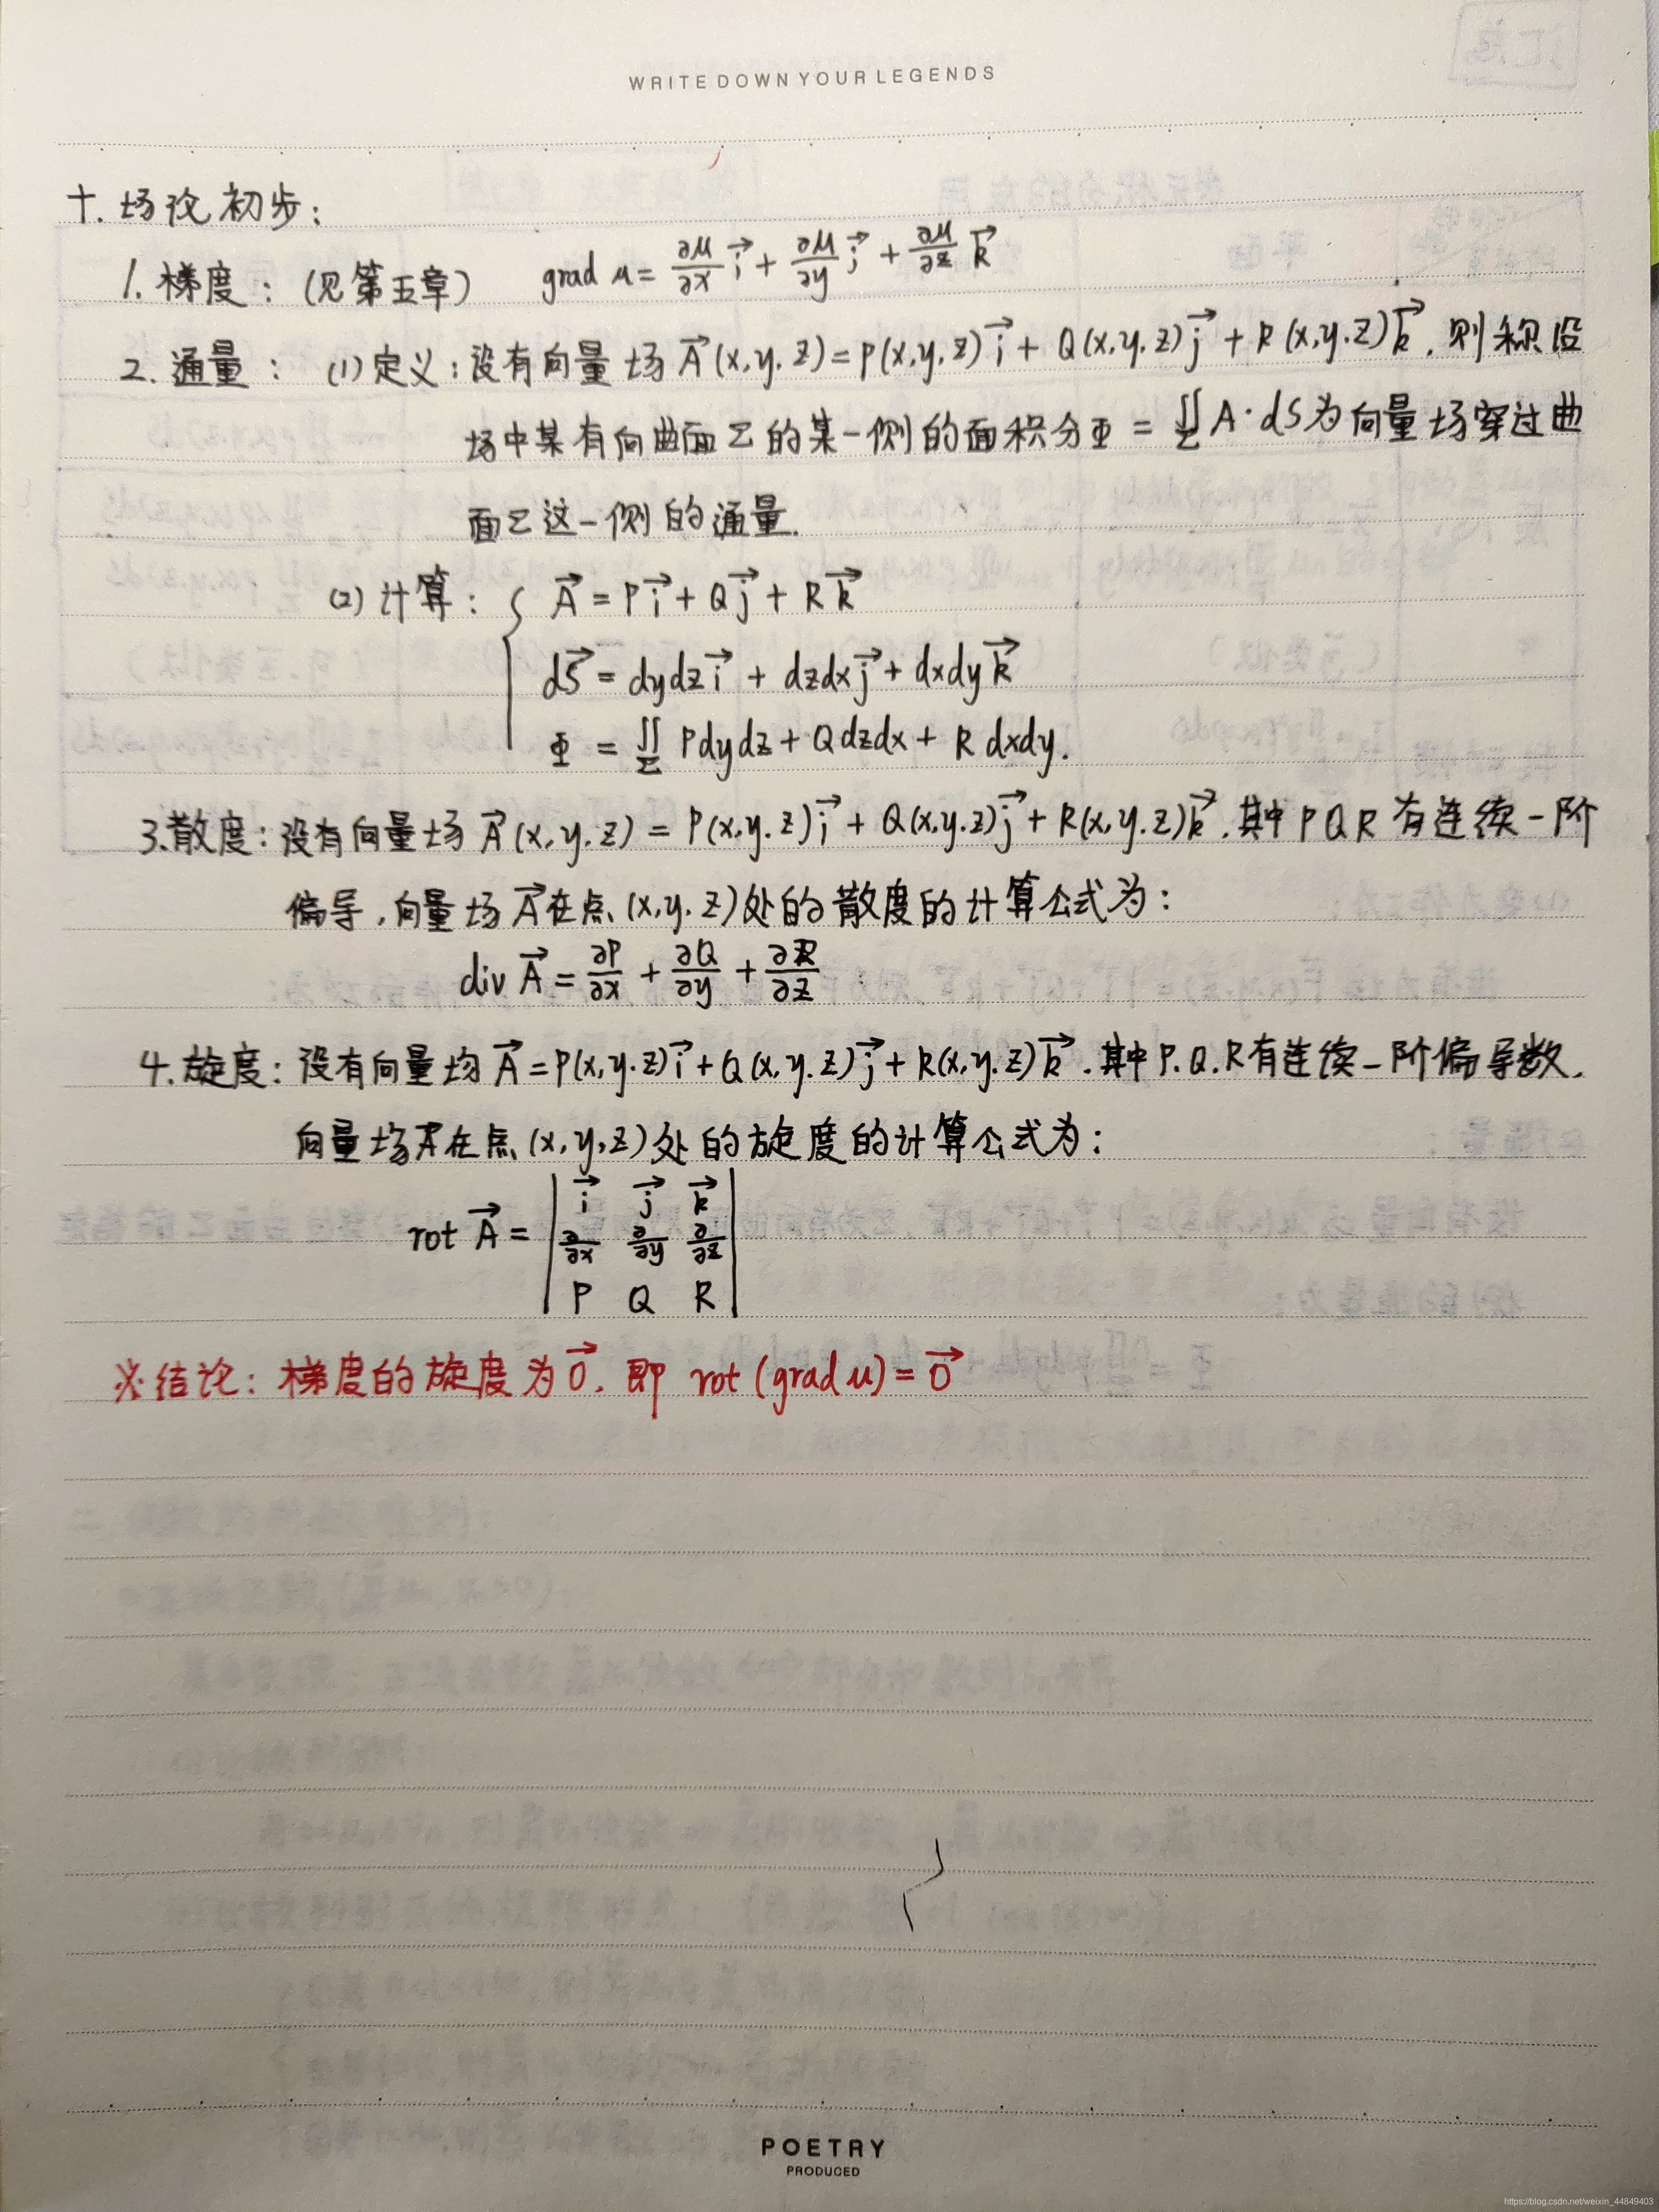 WRITE DOWN YOUR LEGENDS
十.场论初步:
1.梯度:(见第五章) grad u = ∂u/∂x i⃗ + ∂u/∂y j⃗ + ∂u/∂z k⃗
2.通量:(1)定义:设有向量场 A⃗(x,y,z)=P(x,y,z)i⃗+Q(x,y,z)j⃗+R(x,y,z)k⃗,则称沿
场中某有向曲面Σ的某一侧的面积分Φ=∬_Σ A·dS为向量场穿过曲
面Σ这一侧的通量.
(2)计算:{ A⃗=Pi⃗+Qj⃗+Rk⃗
dS⃗=dydz i⃗+dzdx j⃗+dxdy k⃗
Φ=∬_Σ Pdydz+Qdzdx+Rdxdy.
3.散度:设有向量场 A⃗(x,y,z)=P(x,y,z)i⃗+Q(x,y,z)j⃗+R(x,y,z)k⃗,其中PQR有连续一阶
偏导,向量场A⃗在点(x,y,z)处的散度的计算公式为:
div A⃗ = ∂P/∂x + ∂Q/∂y + ∂R/∂z
4.旋度:设有向量均 A⃗=P(x,y,z)i⃗+Q(x,y,z)j⃗+R(x,y,z)k⃗.其中P.Q.R有连续一阶偏导数,
向量场A⃗在点(x,y,z)处的旋度的计算公式为:
i⃗ j⃗ k⃗
rot A⃗ = | ∂/∂x ∂/∂y ∂/∂z |
P Q R
※结论:梯度的旋度为0⃗,即 rot(grad u)=0⃗
POETRY
PRODUCED
https://blog.csdn.net/weixin_44849403